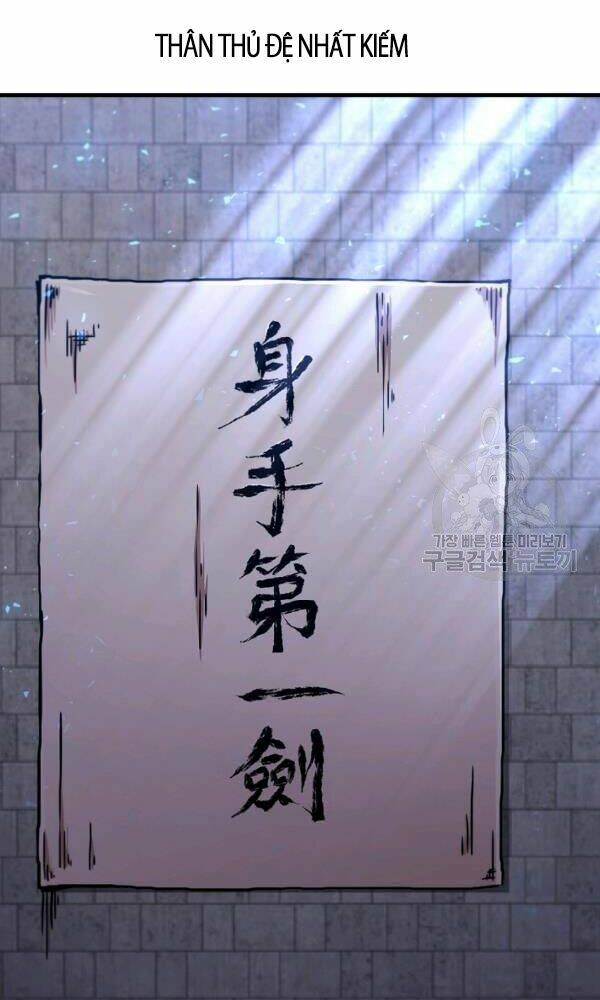 THÂN THỦ ĐỆ NHẤT KIẾM
身手第一劍
가장 빠른 웹툰 미리보기
구글검색 뉴토끼